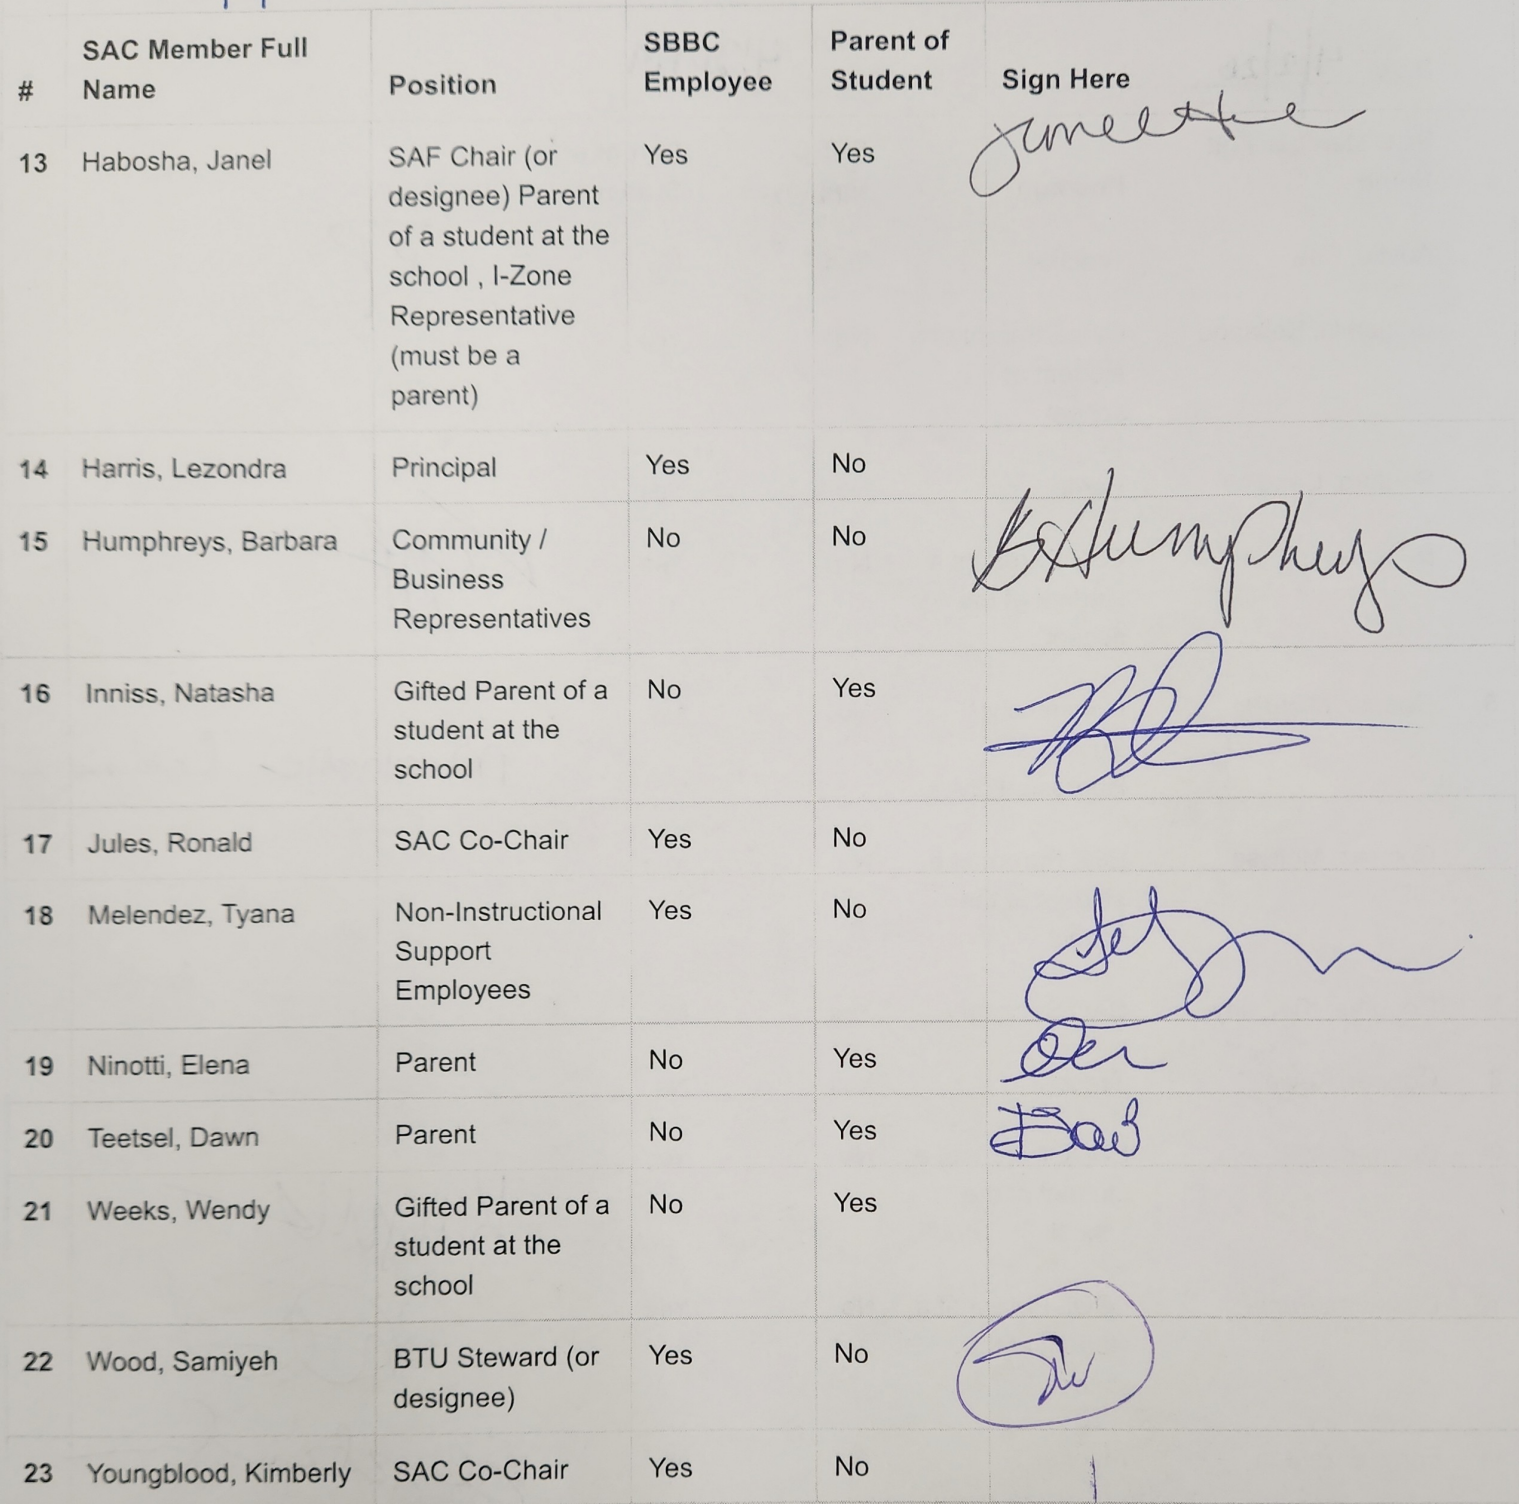 # SAC Member Full Name Position SBBC Employee Parent of Student Sign Here
13 Habosha, Janel SAF Chair (or Yes Yes
designee) Parent
of a student at the
school , I-Zone
Representative
(must be a
parent)
14 Harris, Lezondra Principal Yes No
15 Humphreys, Barbara Community / No No B Humphreys
Business
Representatives
16 Inniss, Natasha Gifted Parent of a No Yes
student at the
school
17 Jules, Ronald SAC Co-Chair Yes No
18 Melendez, Tyana Non-Instructional Yes No
Support
Employees
19 Ninotti, Elena Parent No Yes
20 Teetsel, Dawn Parent No Yes
21 Weeks, Wendy Gifted Parent of a No Yes
student at the
school
22 Wood, Samiyeh BTU Steward (or Yes No
designee)
23 Youngblood, Kimberly SAC Co-Chair Yes No